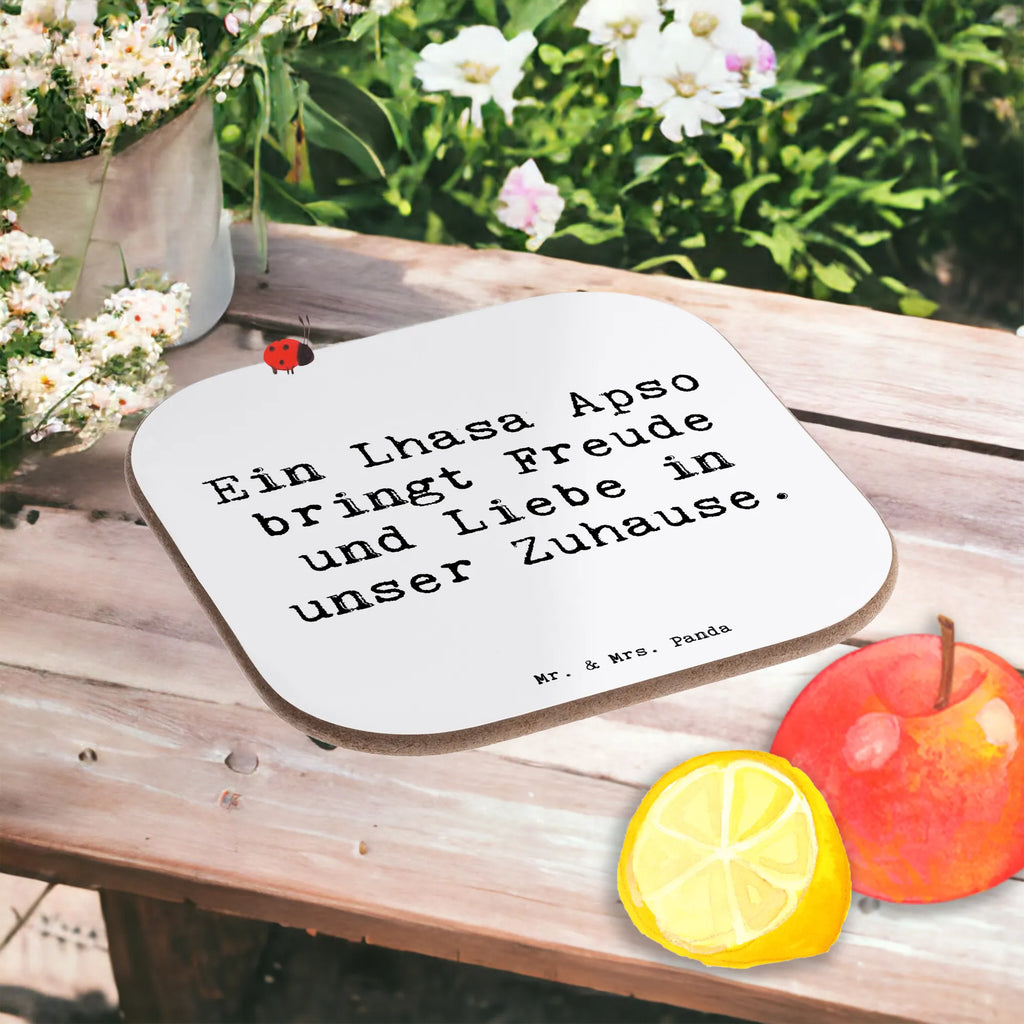 Ein Lhasa Apso
bringt Freude
und Liebe in
unser Zuhause.
Mr. & Mrs. Panda